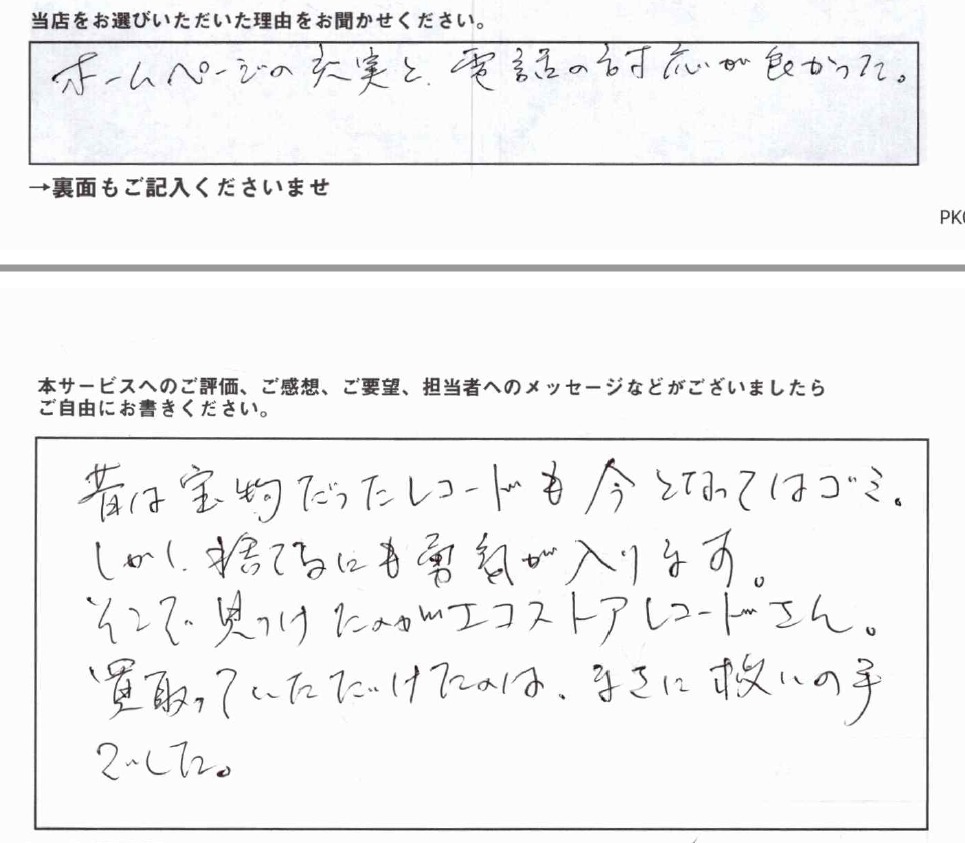 当店をお選びいただいた理由をお聞かせください。
ホームページの充実と、電話の対応が良かった。
→裏面もご記入くださいませ
PK
本サービスへのご評価、ご感想、ご要望、担当者へのメッセージなどがございましたら
ご自由にお書きください。
昔は宝物だったレコードも今となってはゴミ。
しかし、捨てるにも勇気が入ります。
そこで見つけたのがエコストアレコードさん。
買取っていただけたのは、まさに救いの手
でした。